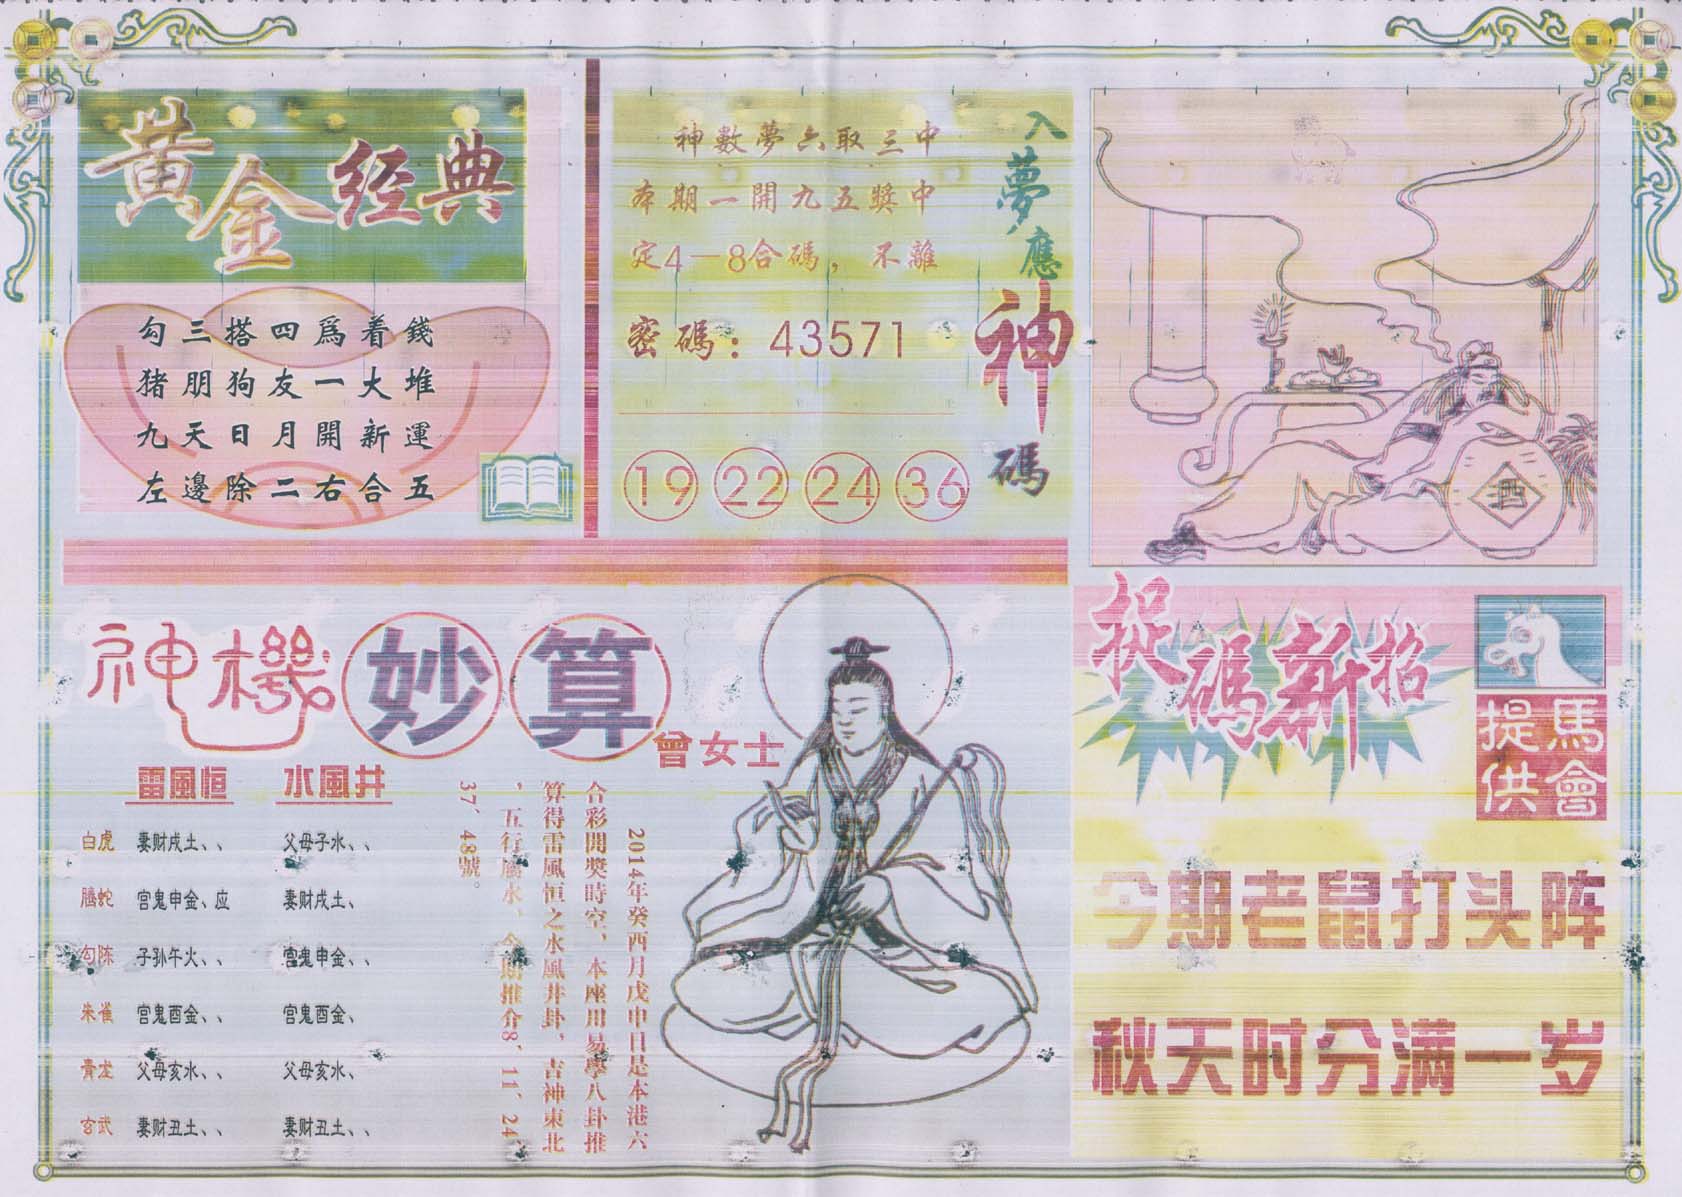 黄金经典
勾三搭四爲着錢
猪朋狗友一大堆
九天日月開新運
左邊除二右合五
神數夢六取三中
本期一開九五獎中
定4－8合碼，不離
密碼：43571
19 22 24 36
入夢應神碼
酒
神機妙算
曾女士
雷風恒 水風井
白虎 妻财戌土、、 父母子水、、
騰蛇 宫鬼申金、应 妻财戌土、
勾陈 子孙午火、、 宫鬼申金、、
朱雀 宫鬼酉金、、 宫鬼酉金、
青龙 父母亥水、、 父母亥水、
玄武 妻财丑土、、 妻财丑土、、
2014年癸酉月戊申日是本港六
合彩開獎時空，本座用易學八卦推
算得雷風恒之水風井卦，吉神東北
，五行屬水，今期推介8、11、24
37、48號。
捉碼新招
馬會
提供
今期老鼠打头阵
秋天时分满一岁